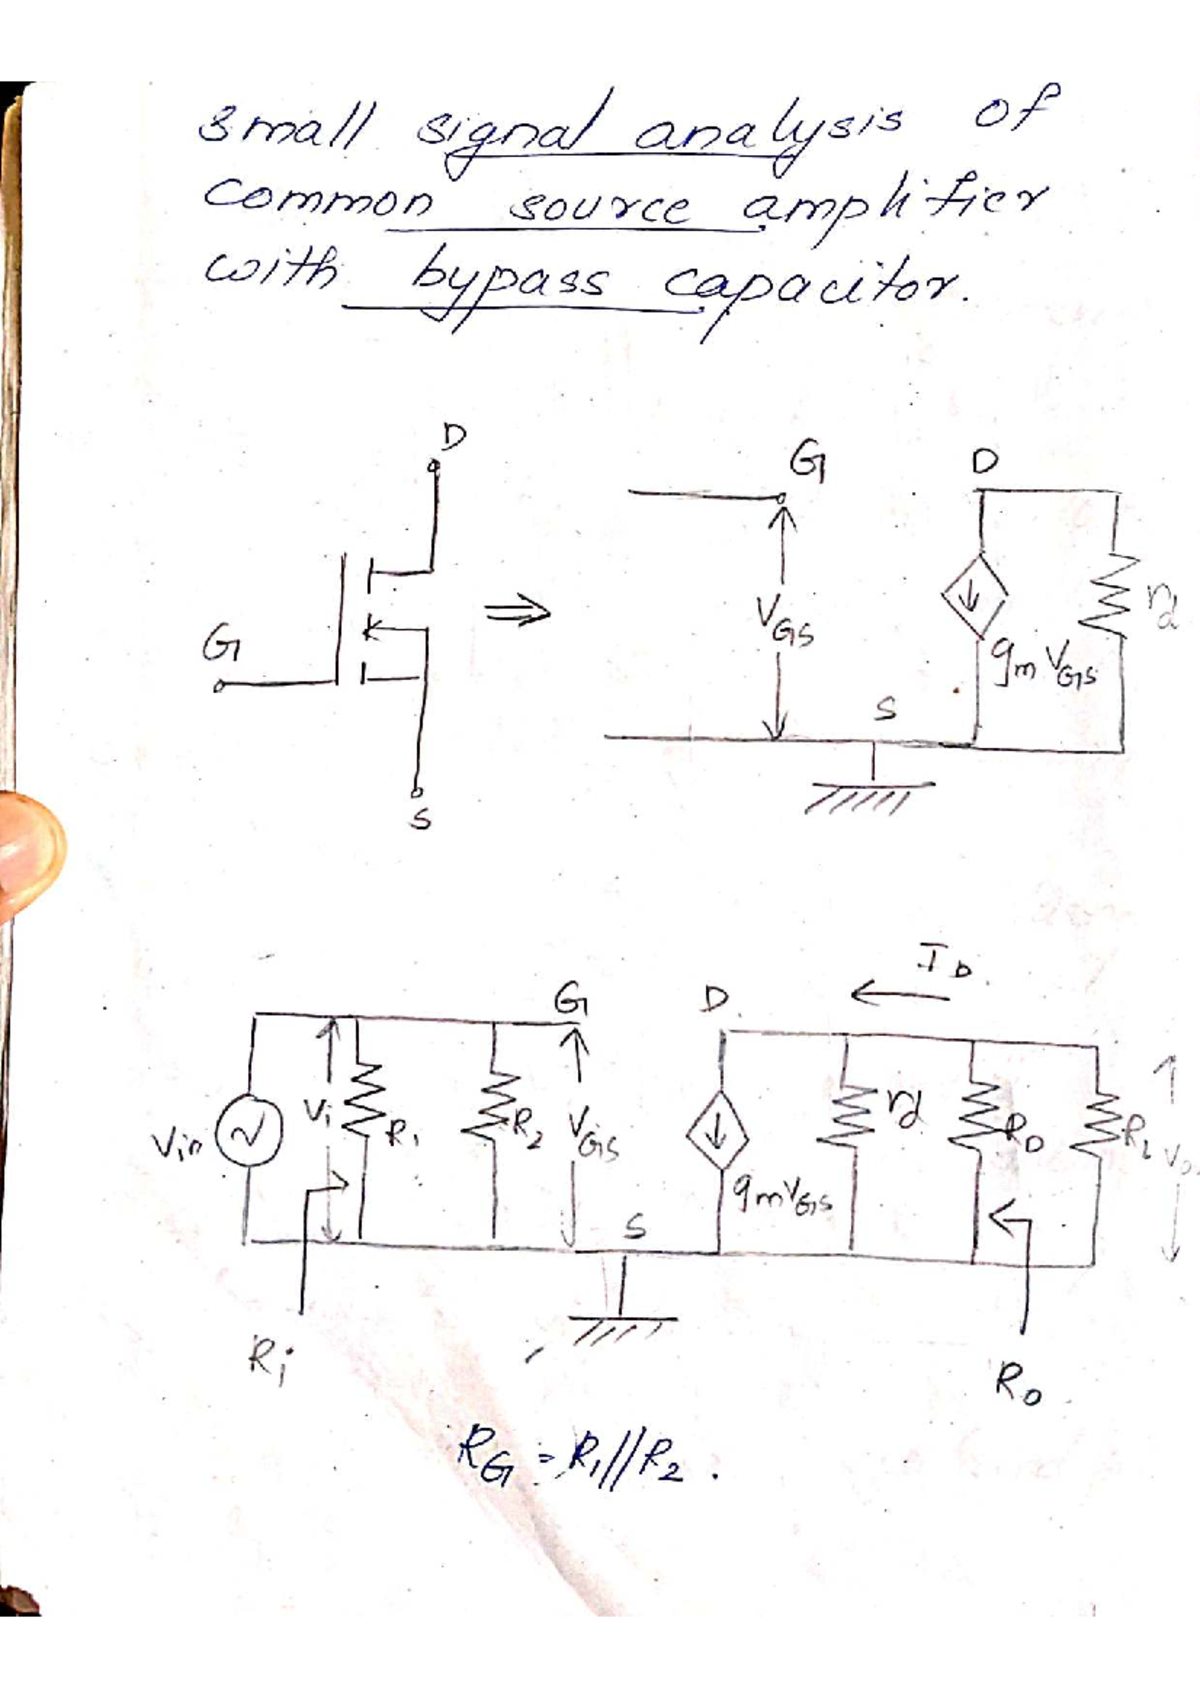 small signal analysis of
common source amplifier
with bypass capacitor.
D
G
S
⇒
G
D
VGS
gm VGS
rd
S
ID
G
D.
Vin
Vi
R1
R2
VGS
gmVGS
rd
RD
RL
Vo
S
Ri
Ro
RG = R1//R2.